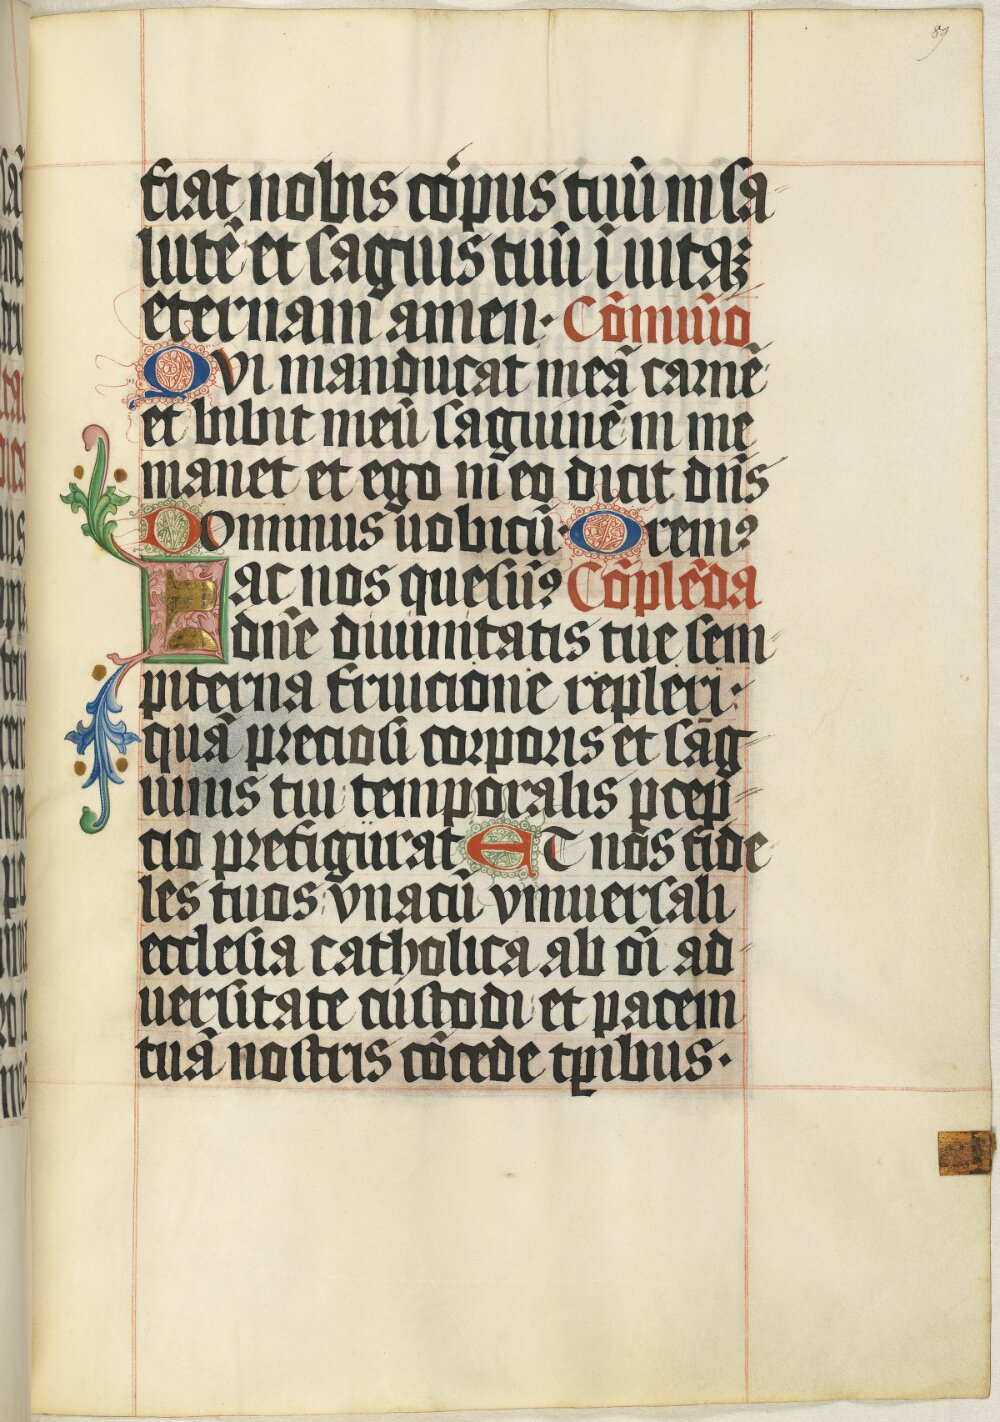 89
fiat nobis corpus tuũ in sa
lutẽ et sãguis tuũ ĩ uitaʒ
eternam amen· Cõmunio
QVi manducat meã carnẽ
et bibit meũ sãguinẽ in me
manet et ego in eo dicit dñs
Dominus uobicũ· Oremꝰ
Fac nos quesũꝰ Cõplẽda
dñe diuinitatis tue sem
piterna fruicione repleri:
quã preciosi corporis et sãg
uinis tui temporalis ꝑcep
cio prefigurat ET nos fide
les tuos vnacũ vniuersali
ecclesia catholica ab oĩ ad
uersitate custodi et pacem
tuã nostris cõcede tꝑibus·